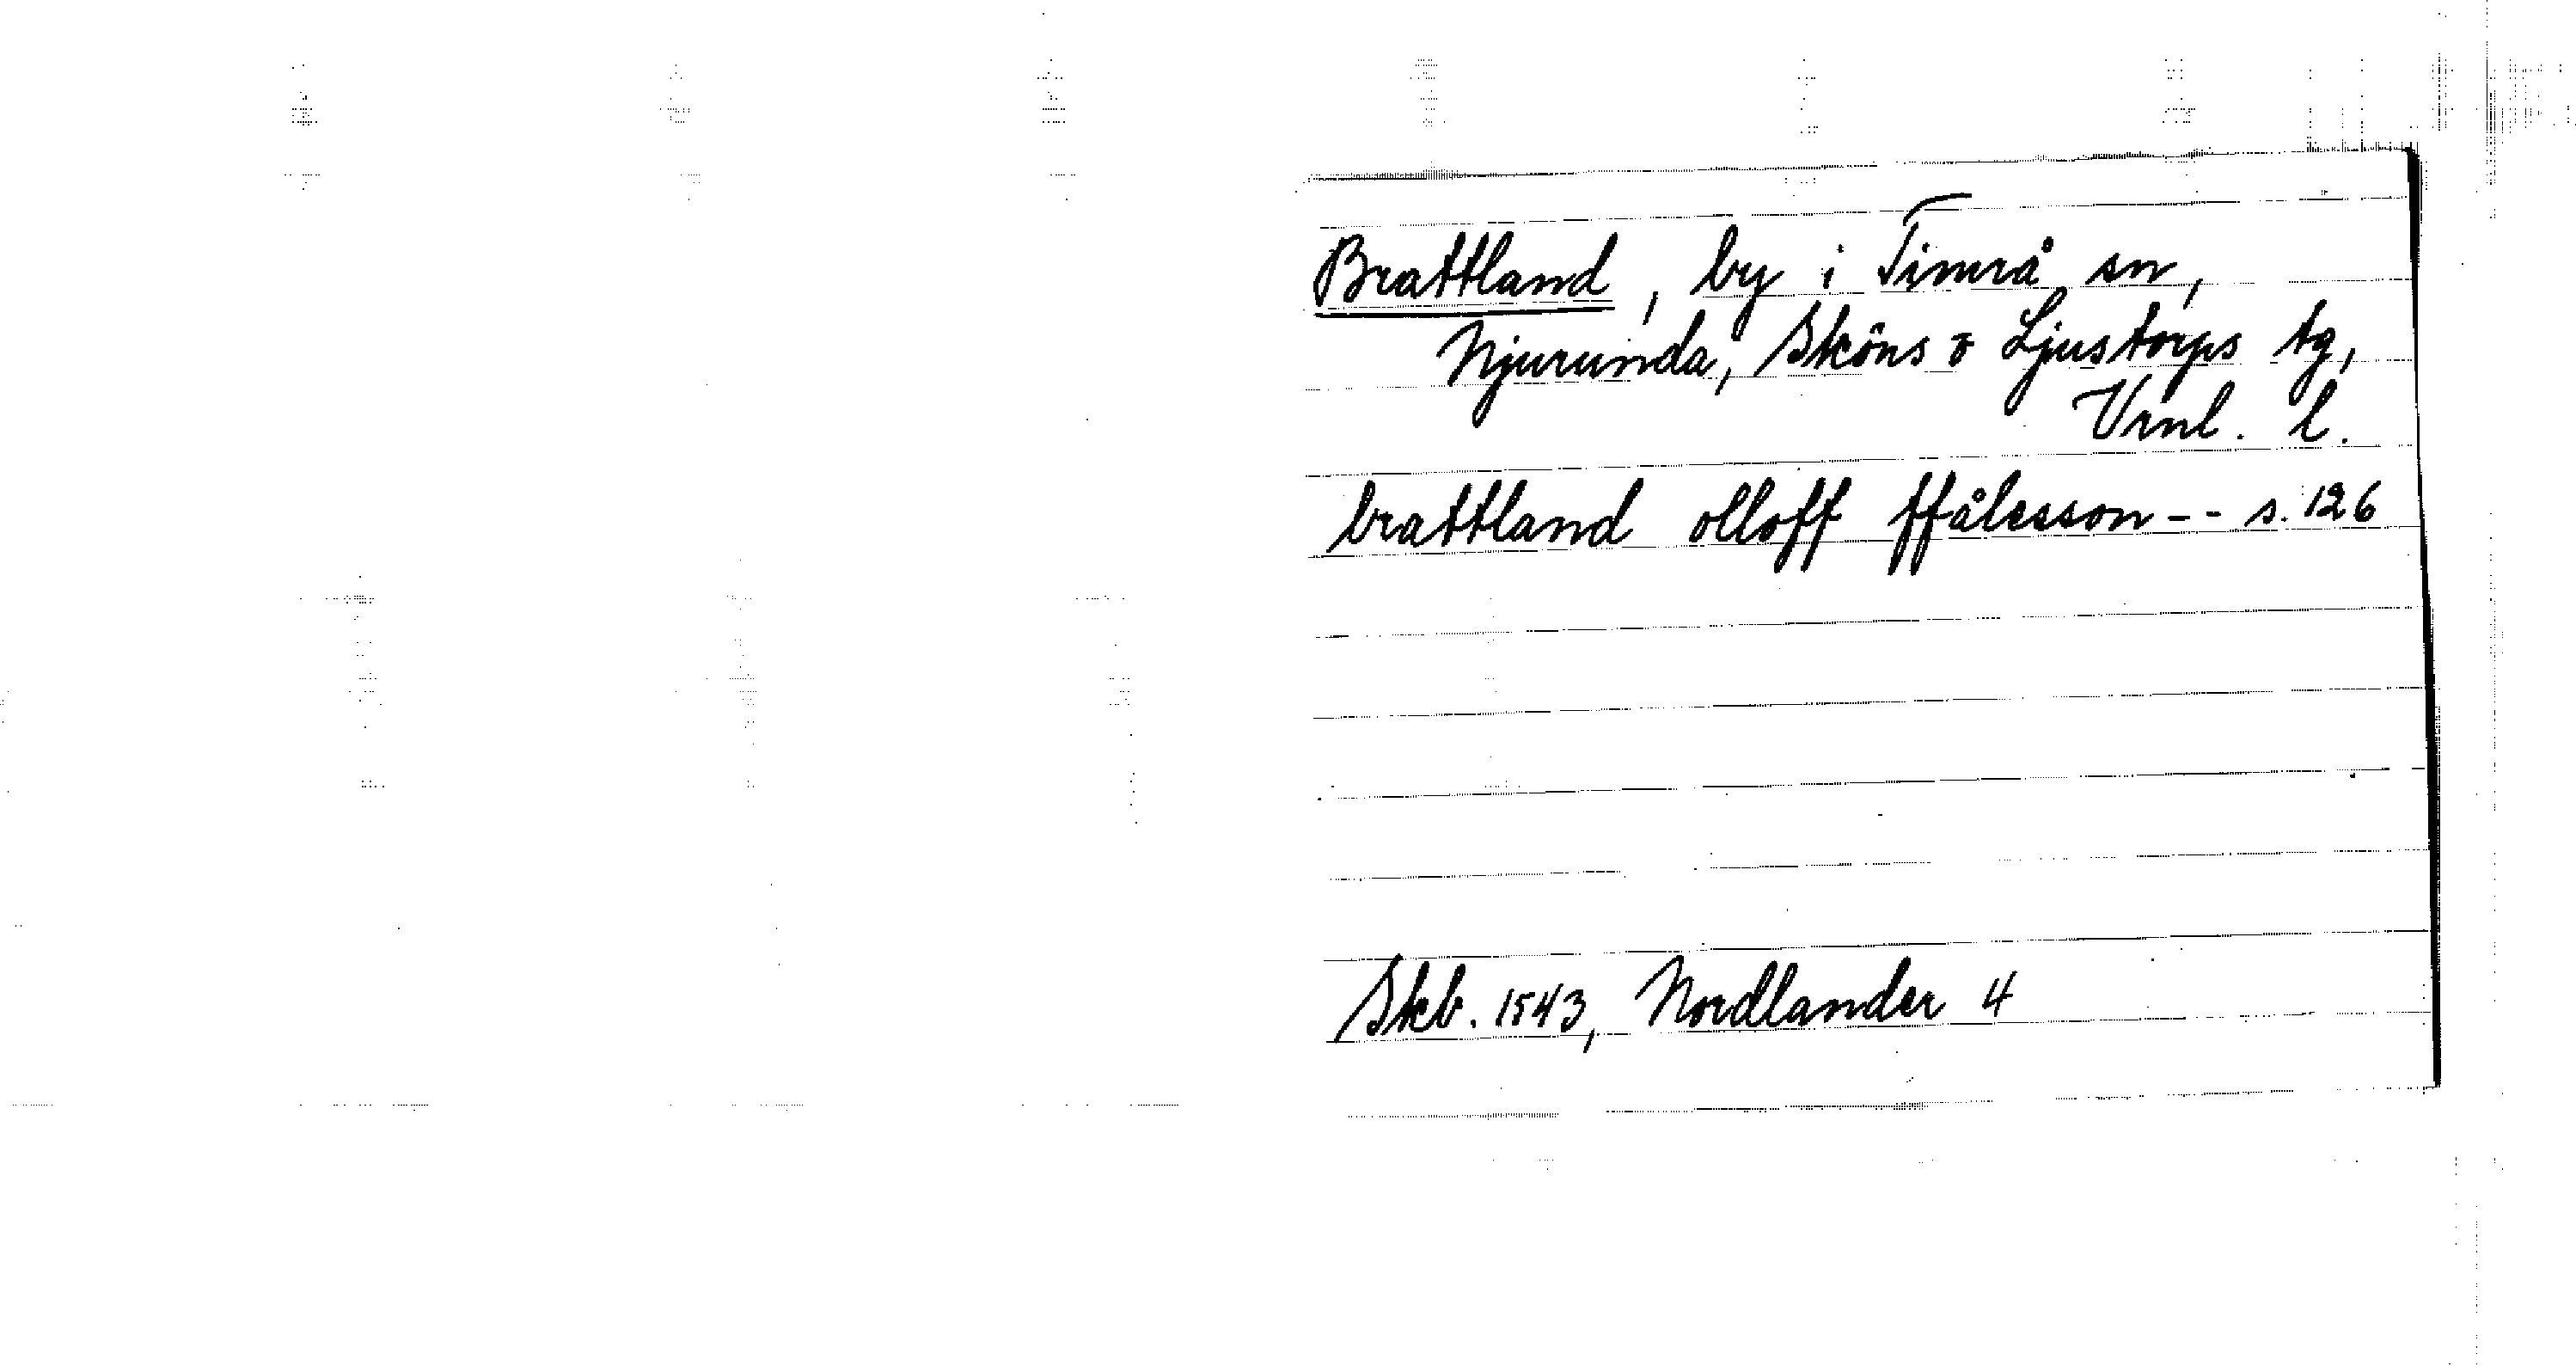 Brattland, by i Timrå sn,
Njurunda, Sköns o Ljustorps tg,
Vrnl. l.
brattland olloff ffålesson-- s. 126
Skb. 1543, Nordlander 4